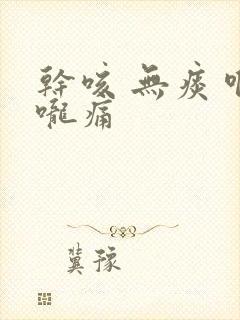 幹咳 無痰
嚨痛
冀豫